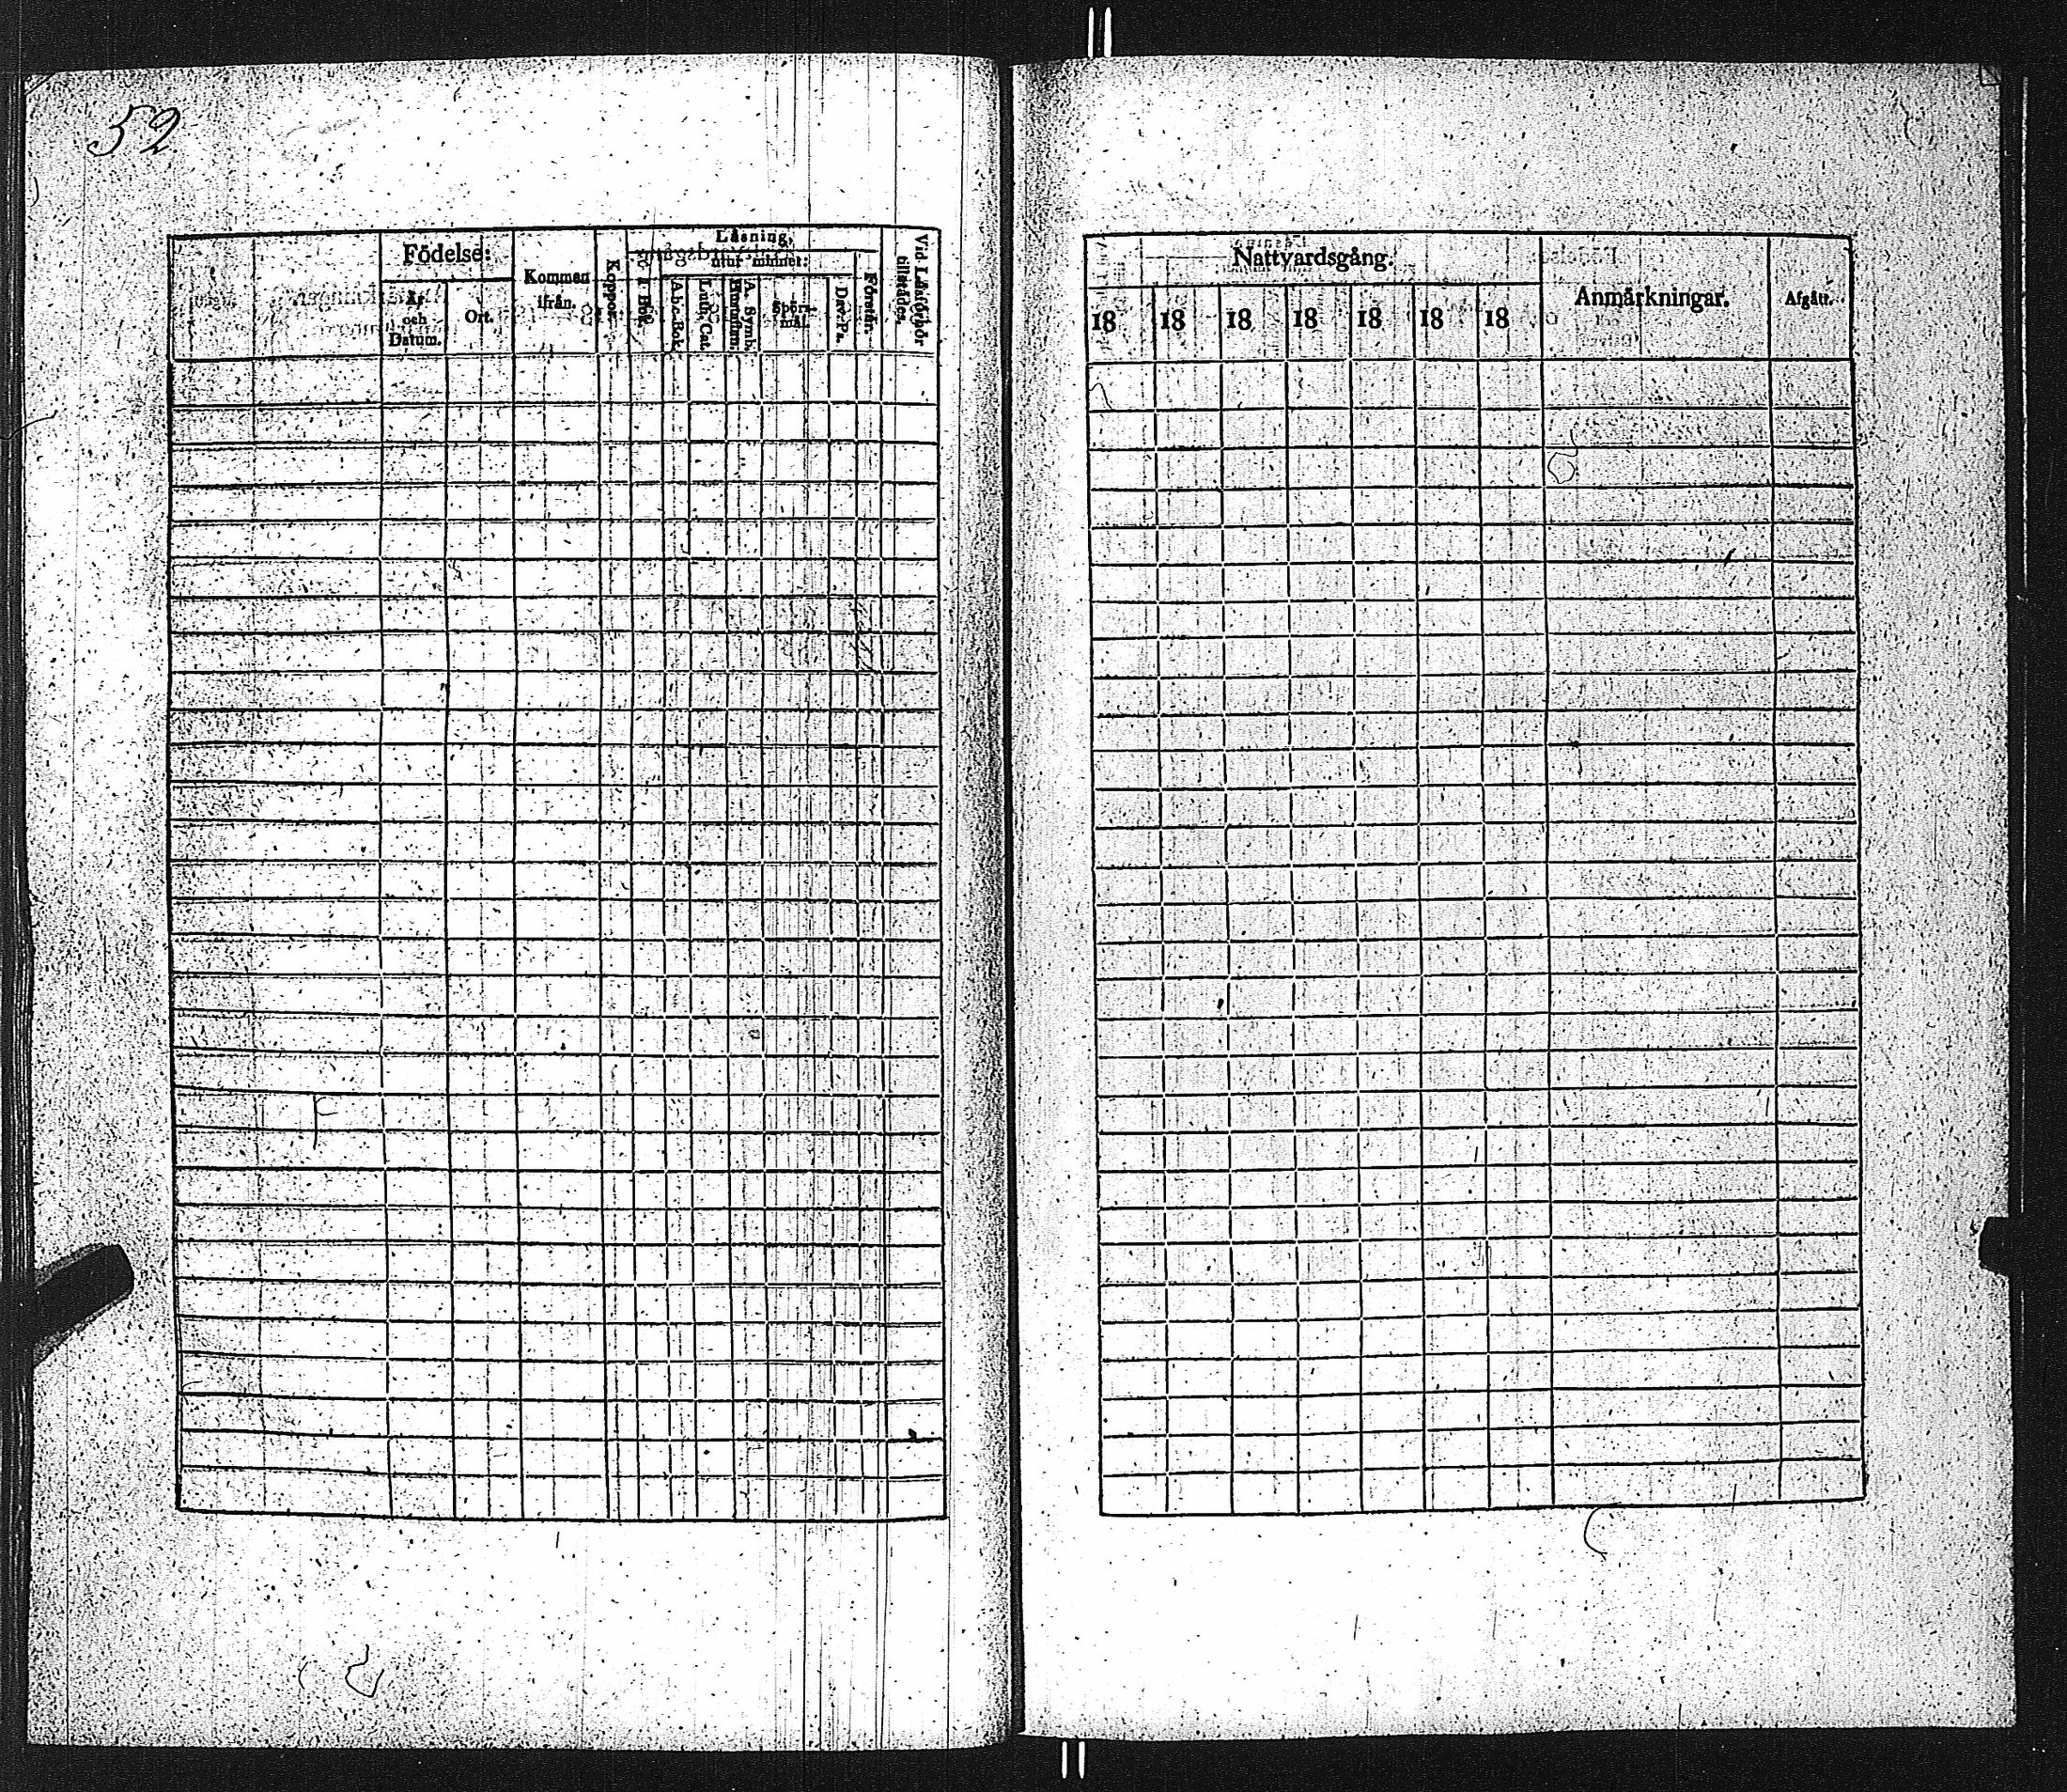 52
Födelse:
År
och
Datum.
Ort.
Kommen
ifrån.
Koppor.
Läsning,
I Bok.
utur minnet:
A.b.c.-Bok.
Luth. Cat.
A. Symb.
Hustafl.
Spörs-
mål.
Dav. Ps.
Förstår.
Vid Läsförhör
tillstädes.
Nattvardsgång.
18 18 18 18 18 18 18
Anmärkningar.
Afgått.